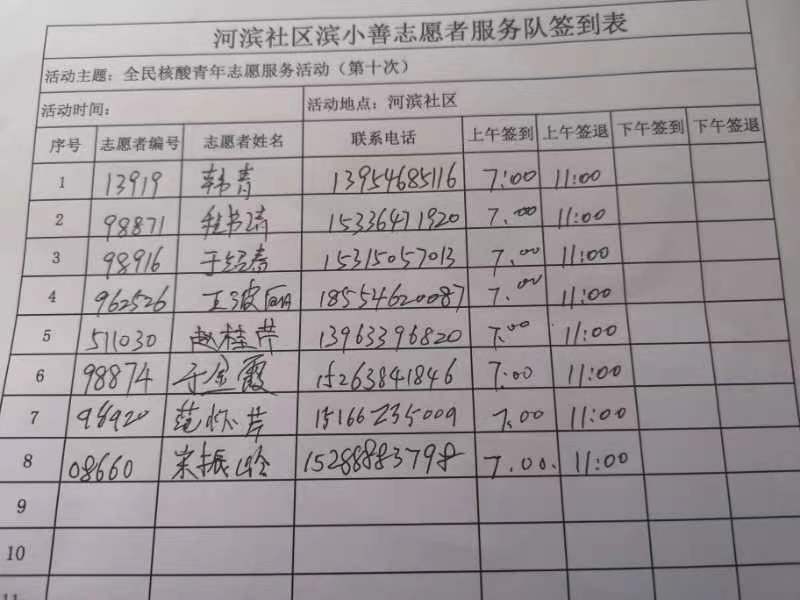 河滨社区滨小善志愿者服务队签到表
活动主题：全民核酸青年志愿服务活动（第十次）
活动时间： 活动地点：河滨社区
序号 志愿者编号 志愿者姓名 联系电话 上午签到 上午签退 下午签到 下午签退
1 13919 韩青 13954685116 7:00 11:00
2 98871 程书涛 15336471920 7.00 11:00
3 98916 于绍春 15315057013 7.00 11:00
4 962526 王波 18554620087 7.00 11:00
5 511030 赵桂芹 13963396820 7.00 11:00
6 98874 于金霞 15263841846 7:00 11:00
7 98920 范怀芹 15166235009 7.00 11:00
8 08660 宋振 15288883798 7.00. 11:00
9
10
11